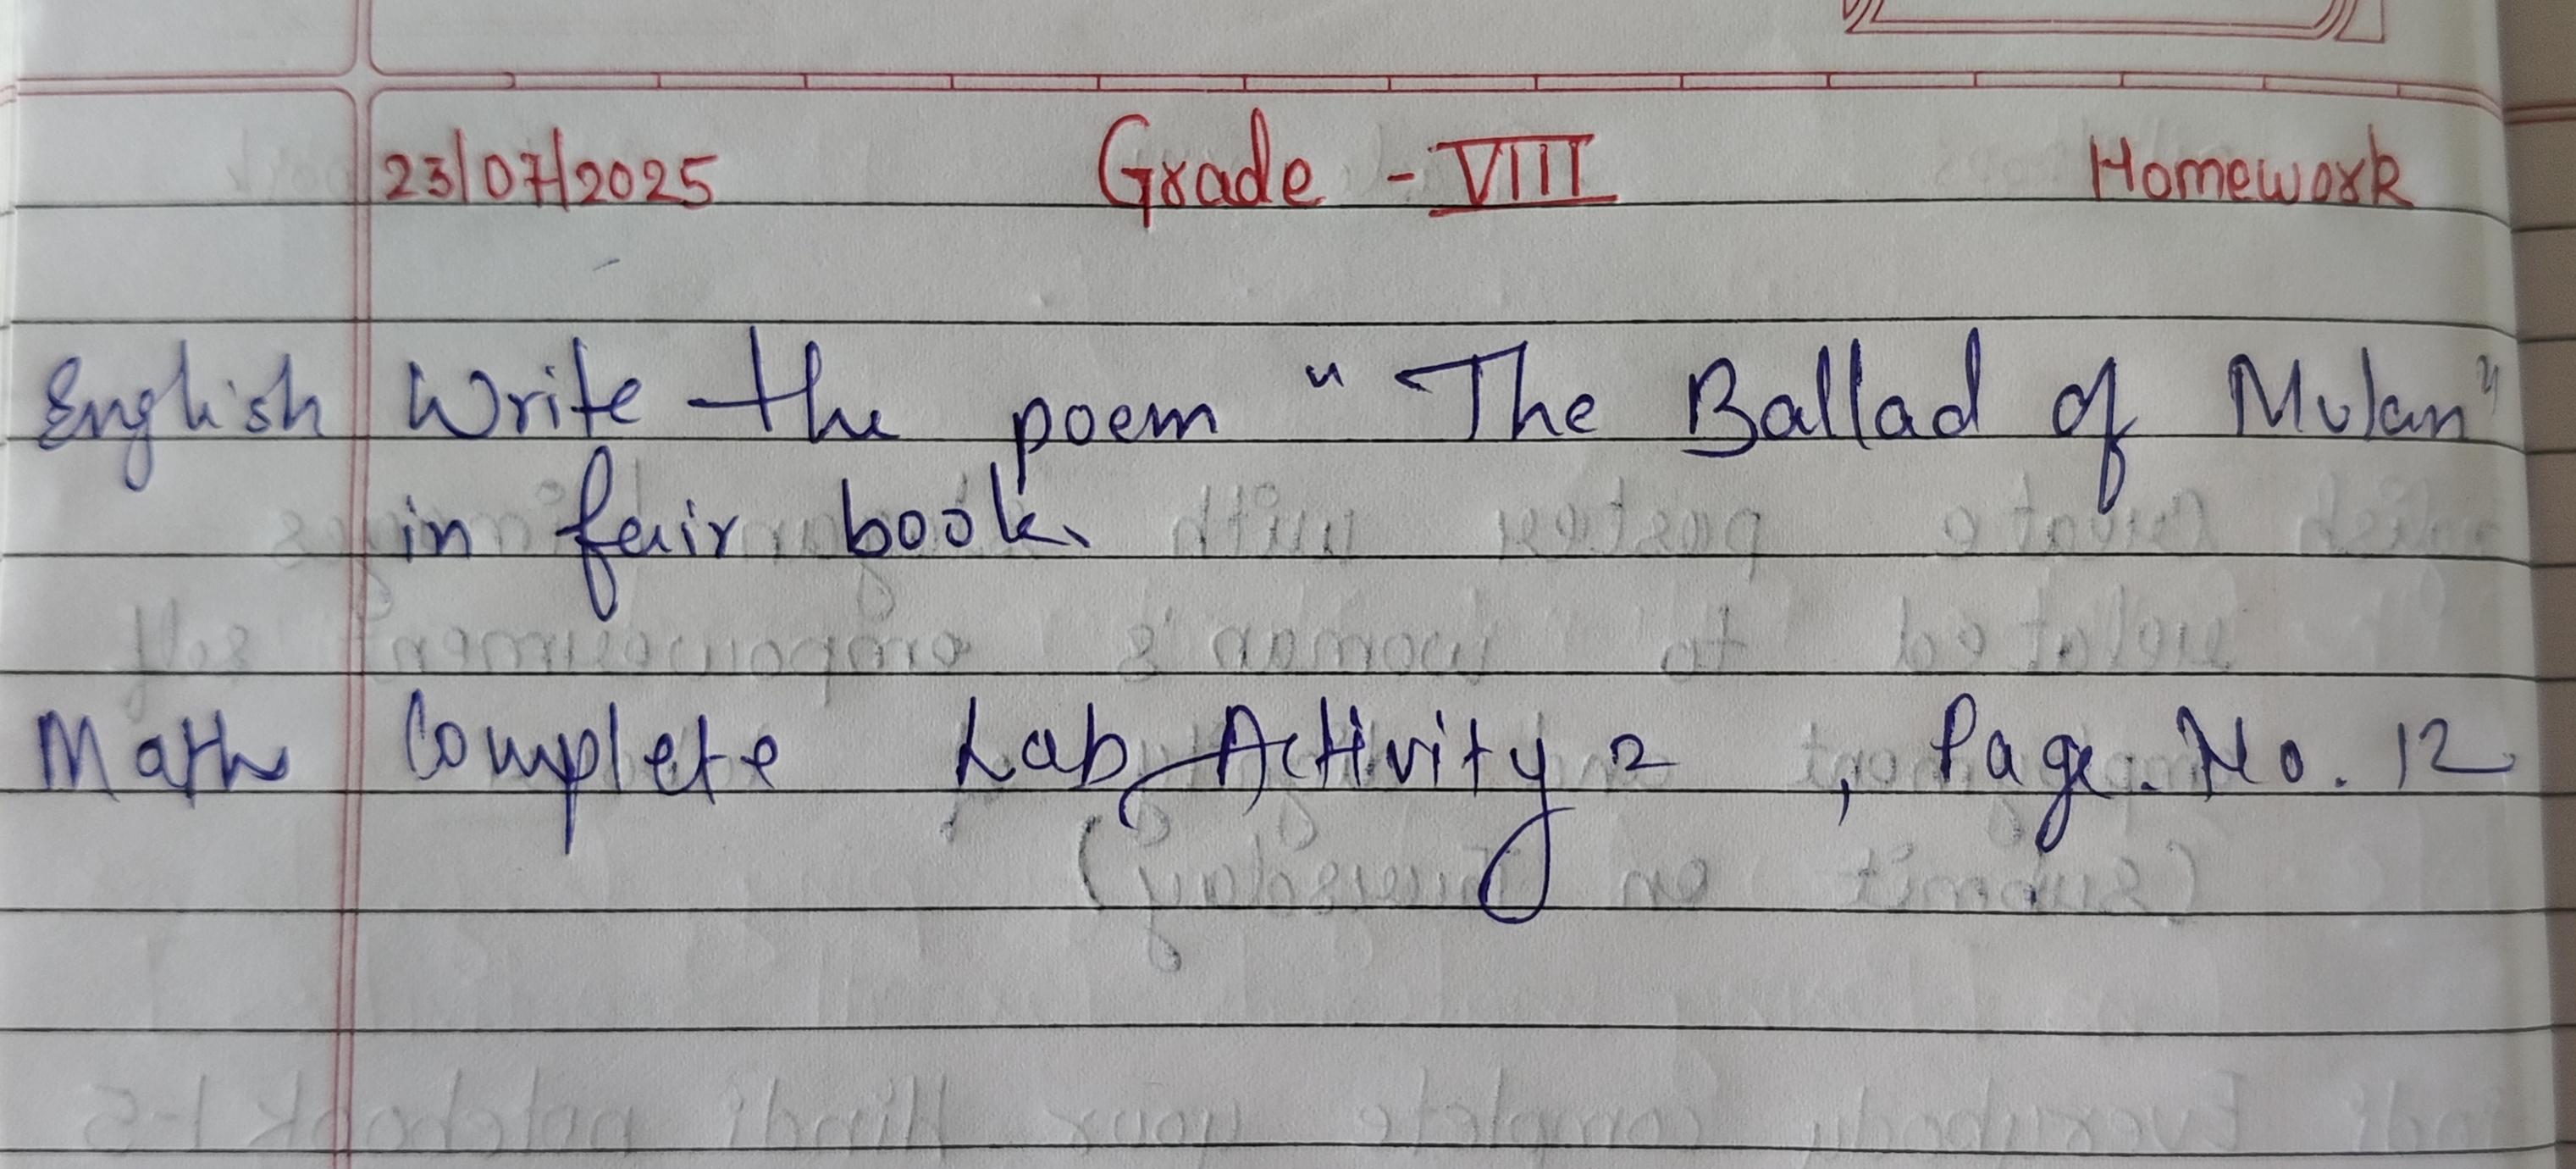 23/07/2025 Grade - VIII Homework
English Write the poem "The Ballad of Mulan"
in fair book.
Math Complete Lab Activity 2 , Page. No. 12